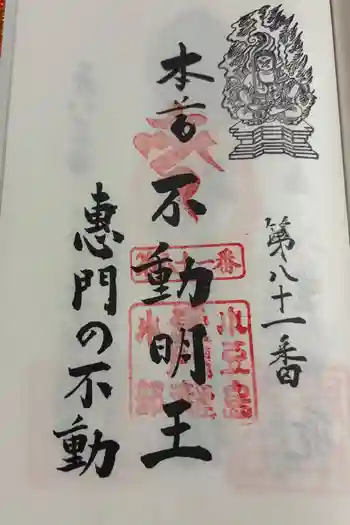 第八十一番
本尊不動明王
恵門の不動
第八十一番
小豆島